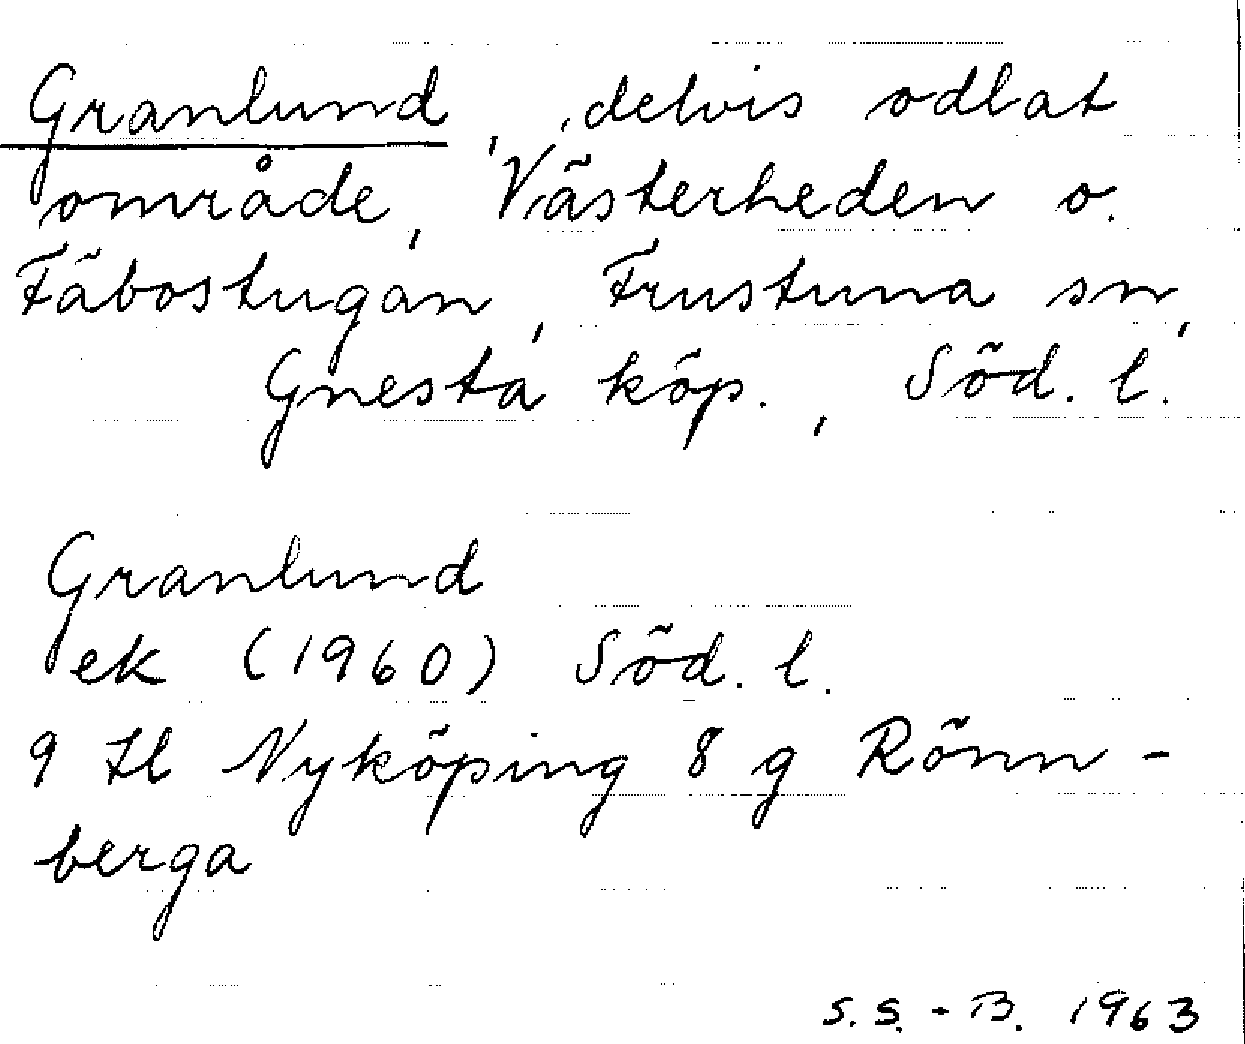 Granlund, delvis odlat
område, Västerheden o.
Fäbostugan, Frustuna sn,
Gnesta köp., Söd. l.
Granlund
ek (1960) Söd. l.
9 Hl Nyköping 8 g Rönn-
berga
S.S.-B. 1963